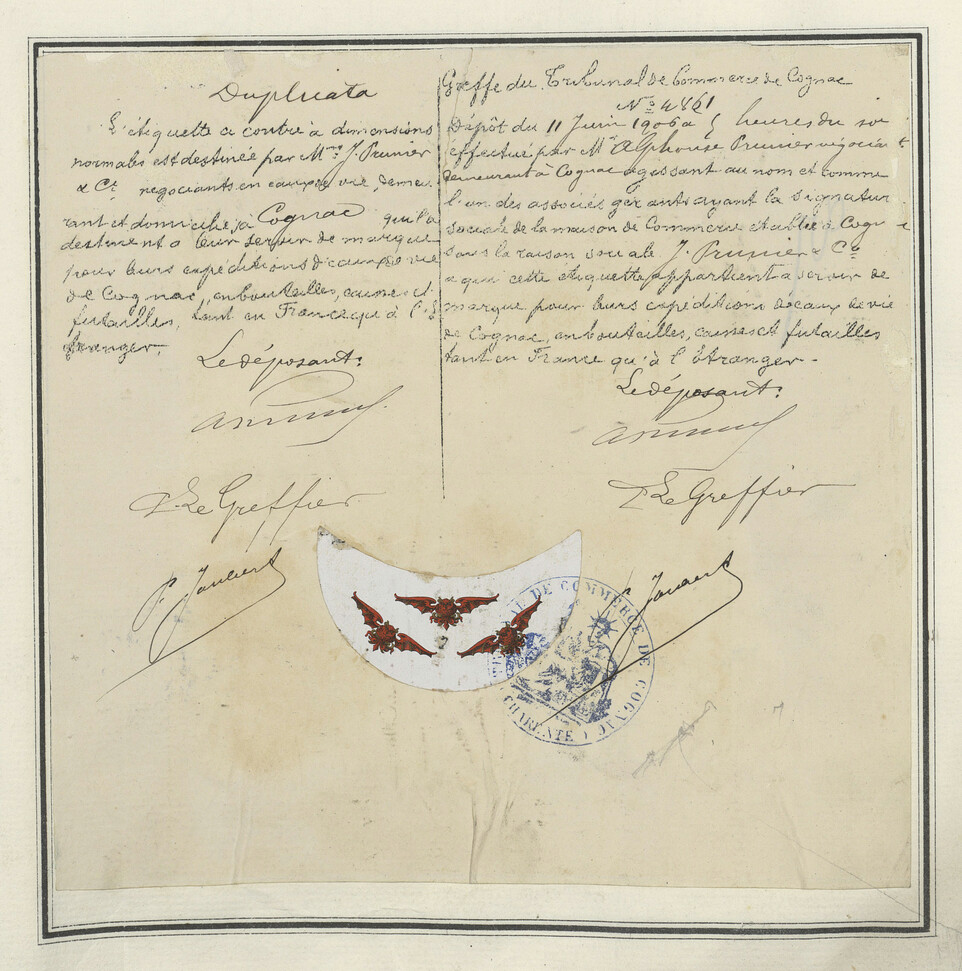 Duplicata
L'étiquette ci contre à dimensions
normales est destinée par Mrs J. Prunier
& Cie négociants en eaux de vie, demeu
rant et domiciliés à Cognac qu'ils
destinent à leur servir de marque
pour leurs expéditions d'eaux de vie
de Cognac, en bouteilles, caisses et
futailles, tant en France qu'à l'É
tranger.
Le déposant:
Le Greffier
Greffe du Tribunal de Commerce de Cognac
No 4861
Dépôt du 11 Juin 1906 à 5 heures du soi
effectué par Mr Alphonse Prunier négociant
demeurant à Cognac agissant au nom et comme
l'un des associés gérants ayant la signatur
sociale de la maison de Commerce établie à Cogn
sous la raison sociale J. Prunier & Co
à qui cette étiquette appartient à servir de
marque pour leurs expéditions de eaux de vie
de Cognac, en bouteilles, caisses et futailles
tant en France qu'à l'Étranger.
Le déposant:
Le Greffier
DE COMMERCE DE COGNAC
CHARENTE